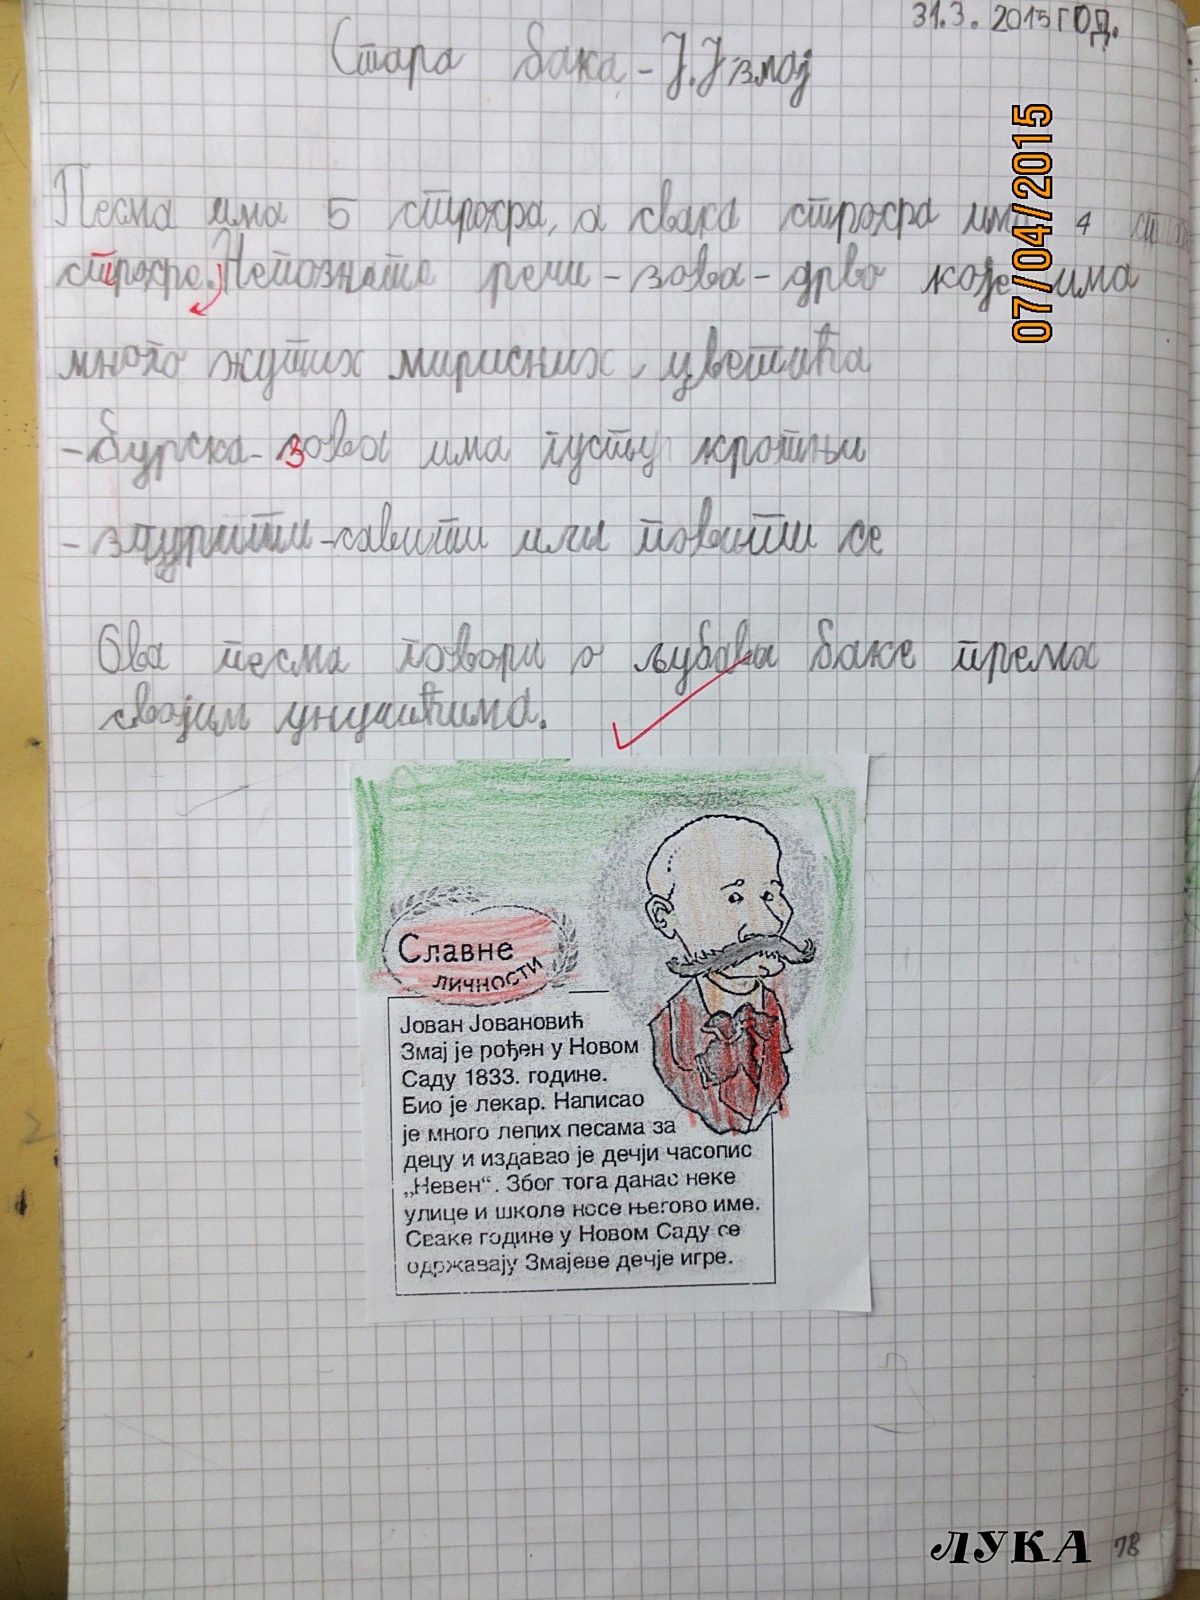 31.3. 2015 ГОД.
Стара бака - Ј.Ј Змај
07/04/2015
Песма има 5 строфра, а свака строфра има 4
строфре. Непознате речи - зова - дрво које има
много жутих мирисних цветића
- бурска - зова има густу крошњи
- згурити - савити или повити се
Ова песма говори о љубави баке према
својим унучићима.
Славне
личности
Јован Јовановић
Змај је рођен у Новом
Саду 1833. године.
Био је лекар. Написао
је много лепих песама за
децу и издавао је дечји часопис
„Невен“. Због тога данас неке
улице и школе носе његово име.
Сваке године у Новом Саду се
одржавају Змајеве дечје игре.
ЛУКА 78